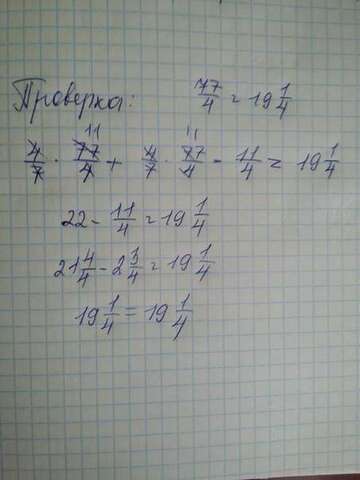 Проверка: 77/4 = 19 1/4
11 11
4/7 · 77/4 + 4/7 · 77/4 - 11/4 = 19 1/4
22 - 11/4 = 19 1/4
21 4/4 - 2 3/4 = 19 1/4
19 1/4 = 19 1/4